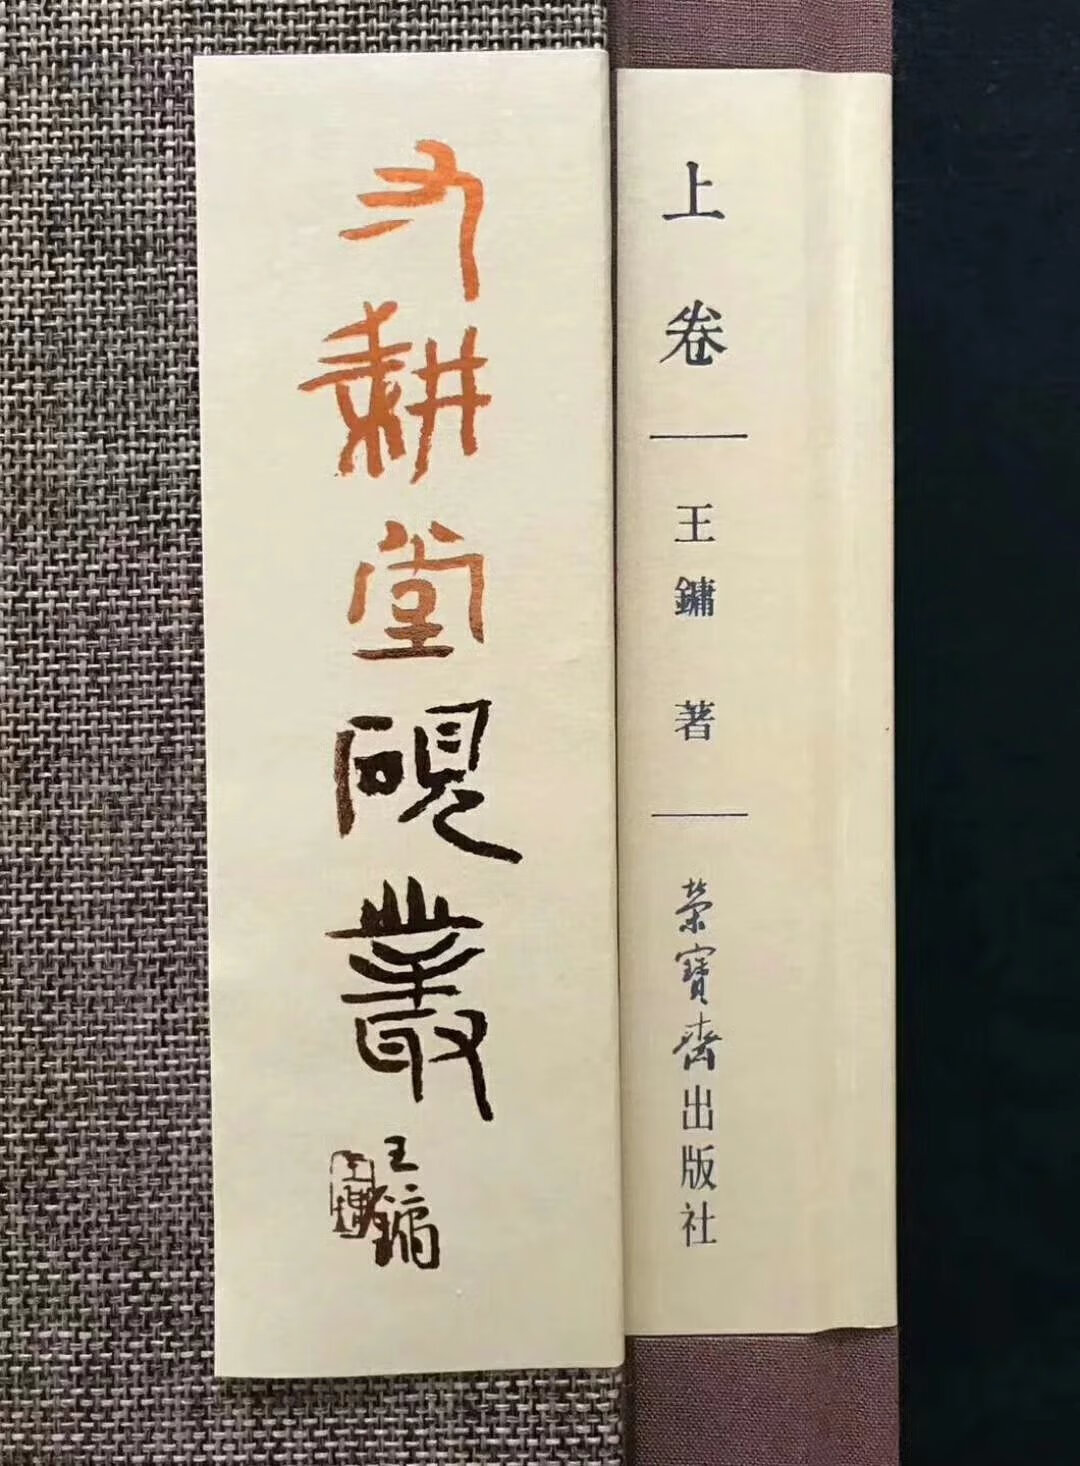 又耕堂硯叢
王鏞
上卷
王鏞 著
榮寶齋出版社